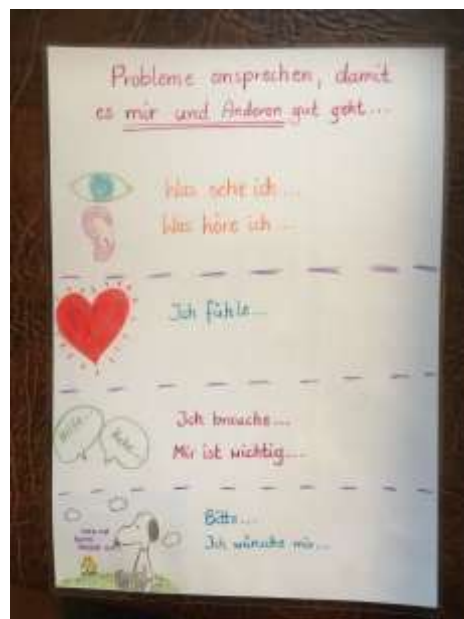 Probleme ansprechen, damit
es mir und Anderen gut geht...
Was sehe ich...
Was höre ich...
Ich fühle...
Ich brauche...
Mir ist wichtig...
Bitte...
Ich wünsche mir...